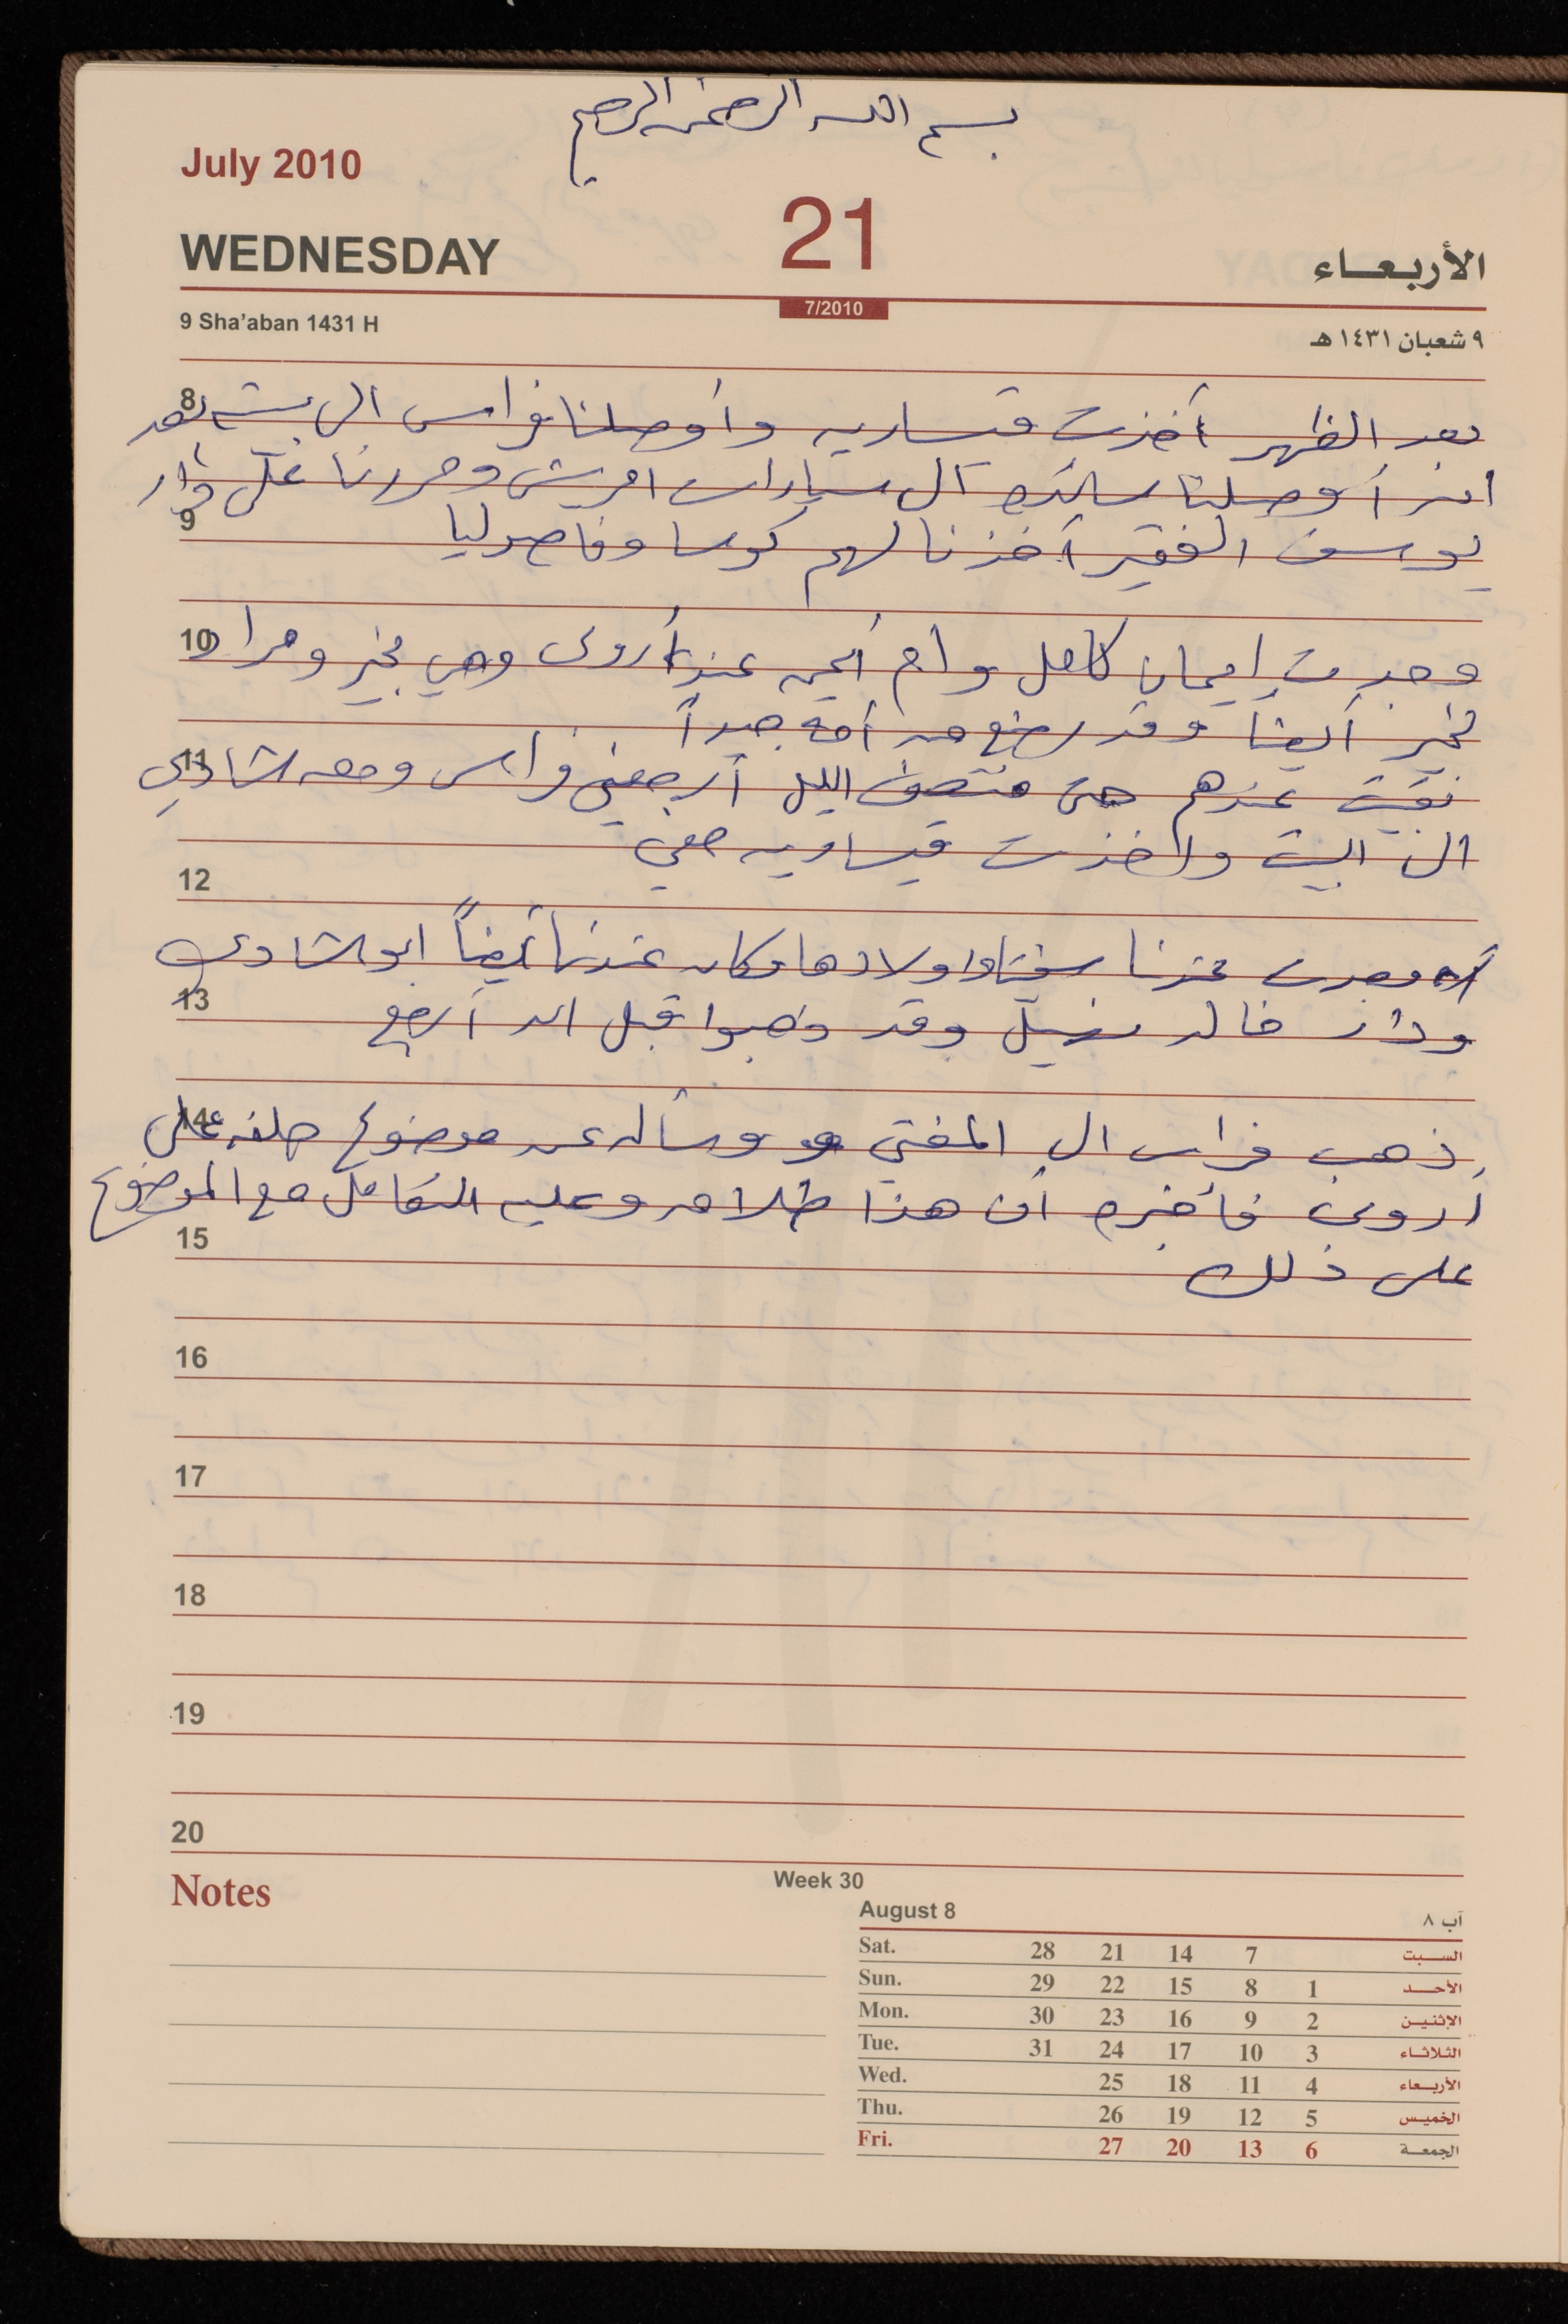 بسم الله الرحمن الرحيم
July 2010
WEDNESDAY 21 الأربعاء
7/2010
9 Sha'aban 1431 H ٩ شعبان ١٤٣١ هـ
8
بعد الظهر أخذت قيساريه وأوصلنا فراس الى بيته بعد
ان أوصلنا الى سيارات ومررنا على دار
9
يوسف الفقير أخذنا لهم كوسا وفاصوليا
10
وجدت إيمان كامل وام أيمن عند أروى وهي بخير ومراد
بخير أيضاً وقد رضع من أمه جيداً
11
بقيت عندهم حتى منتصف الليل أرجعني فراس ومعه الشادي
الى البيت واخذت قيساريه معي
12
وجدت عندنا واولادها وكان عندنا أيضاً ابو الشادي
13
ودار خالد نبيل وقد ذهبوا قبل ان أرجع
14
ذهب فراس الى المفتي وسأله عن موضوع حلفه على
أروى فأخبره أن هذا طلاق وعليه التعامل مع الموضوع
15
على ذلك
16
17
18
19
20
Notes
Week 30
August 8 آب ٨
Sat. 28 21 14 7 السبت
Sun. 29 22 15 8 1 الأحد
Mon. 30 23 16 9 2 الإثنين
Tue. 31 24 17 10 3 الثلاثاء
Wed. 25 18 11 4 الأربعاء
Thu. 26 19 12 5 الخميس
Fri. 27 20 13 6 الجمعة